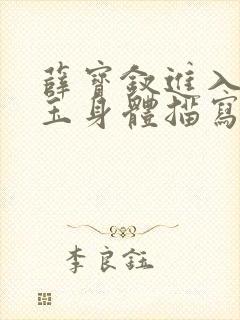 薛寶釵進入
玉身體描寫
李良鈺